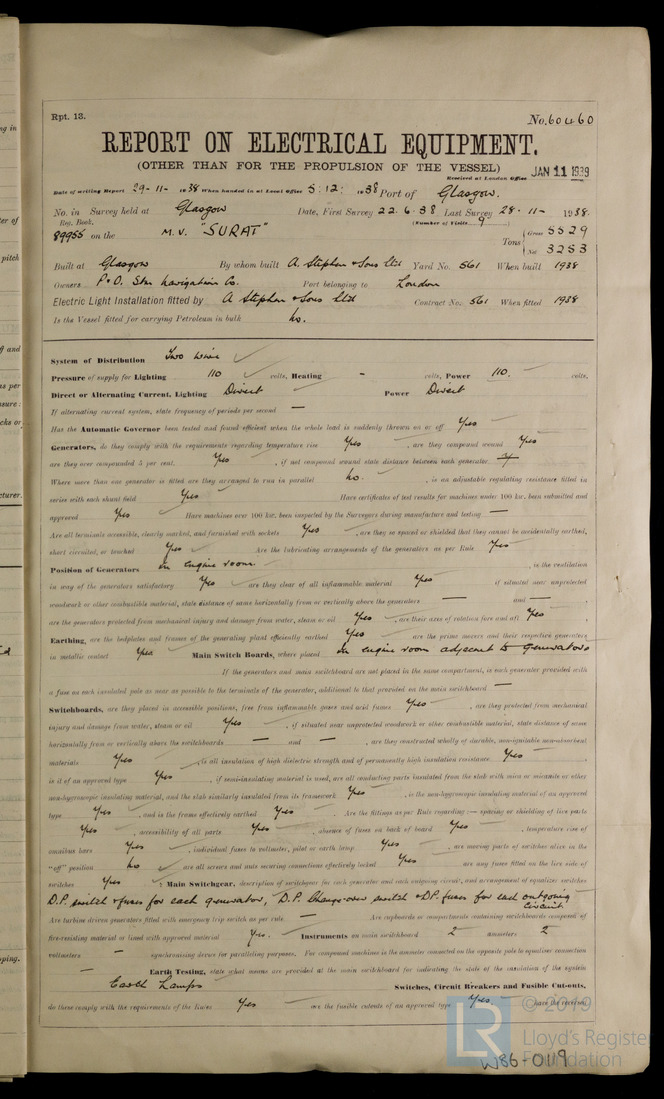 Rpt. 13.
No. 60460
REPORT ON ELECTRICAL EQUIPMENT.
(OTHER THAN FOR THE PROPULSION OF THE VESSEL)
Received at London Office JAN 11 1939
Date of writing Report 29-11-1938 When handed in at Local Office 5:12: 1938 Port of Glasgow.
No. in Survey held at Glasgow Date, First Survey 22.6.38 Last Survey 28-11-1938.
Reg. Book. (Number of Visits 9)
89955 on the M.V. "SURAT" Tons Gross 5529
Net 3253
Built at Glasgow By whom built A. Stephen & Sons Ltd Yard No. 561 When built 1938
Owners P & O. Stm Navigation Co. Port belonging to London
Electric Light Installation fitted by A Stephen & Sons Ltd Contract No. 561 When fitted 1938
Is the Vessel fitted for carrying Petroleum in bulk No.
System of Distribution Two wire
Pressure of supply for Lighting 110 volts, Heating - volts, Power 110. volts.
Direct or Alternating Current, Lighting Direct Power Direct
If alternating current system, state frequency of periods per second —
Has the Automatic Governor been tested and found efficient when the whole load is suddenly thrown on or off Yes
Generators, do they comply with the requirements regarding temperature rise Yes, are they compound wound Yes
are they over compounded 5 per cent. Yes, if not compound wound state distance between each generator
Where more than one generator is fitted are they arranged to run in parallel No., is an adjustable regulating resistance fitted in
series with each shunt field Yes Have certificates of test results for machines under 100 kw. been submitted and
approved Yes Have machines over 100 kw. been inspected by the Surveyors during manufacture and testing —
Are all terminals accessible, clearly marked, and furnished with sockets Yes, are they so spaced or shielded that they cannot be accidentally earthed,
short circuited, or touched Yes Are the lubricating arrangements of the generators as per Rule Yes
Position of Generators in engine room, is the ventilation
in way of the generators satisfactory Yes are they clear of all inflammable material Yes if situated near unprotected
woodwork or other combustible material, state distance of same horizontally from or vertically above the generators — and —,
are the generators protected from mechanical injury and damage from water, steam or oil Yes, are their axes of rotation fore and aft Yes.
Earthing, are the bedplates and frames of the generating plant efficiently earthed Yes are the prime movers and their respective generators
in metallic contact Yes Main Switch Boards, where placed in engine room adjacent to generators
If the generators and main switchboard are not placed in the same compartment, is each generator provided with
a fuse on each insulated pole as near as possible to the terminals of the generator, additional to that provided on the main switchboard —
Switchboards, are they placed in accessible positions, free from inflammable gases and acid fumes Yes, are they protected from mechanical
injury and damage from water, steam or oil Yes, if situated near unprotected woodwork or other combustible material, state distance of same
horizontally from or vertically above the switchboards — and —, are they constructed wholly of durable, non-ignitable non-absorbent
materials Yes, is all insulation of high dielectric strength and of permanently high insulation resistance Yes,
is it of an approved type Yes, if semi-insulating material is used, are all conducting parts insulated from the slab with mica or micanite or other
non-hygroscopic insulating material, and the slab similarly insulated from its framework Yes, is the non-hygroscopic insulating material of an approved
type Yes, and is the frame effectively earthed Yes Are the fittings as per Rule regarding:— spacing or shielding of live parts
Yes, accessibility of all parts Yes, absence of fuses on back of board Yes, temperature rise of
omnibus bars Yes, individual fuses to voltmeter, pilot or earth lamp Yes, are moving parts of switches alive in the
"off" position No are all screws and nuts securing connections effectively locked Yes are any fuses fitted on the live side of
switches Yes Main Switchgear, description of switchgear for each generator and each outgoing circuit, and arrangement of equaliser switches
D.P. switch & fuses for each generator, D.P. Change-over switch & DP. fuses for each outgoing
circuit
Are turbine driven generators fitted with emergency trip switch as per rule — Are cupboards or compartments containing switchboards composed of
fire-resisting material or lined with approved material Yes. Instruments on main switchboard 2 ammeters 2
voltmeters — synchronising device for paralleling purposes. For compound machines is the ammeter connected on the opposite pole to equaliser connection
— Earth Testing, state what means are provided at the main switchboard for indicating the state of the insulation of the system
Earth Lamps Switches, Circuit Breakers and Fusible Cut-outs,
do these comply with the requirements of the Rules Yes are the fusible cutouts of an approved type Yes. have the reversed
LR
© 2019
Lloyd's Register
Foundation
W86-0119